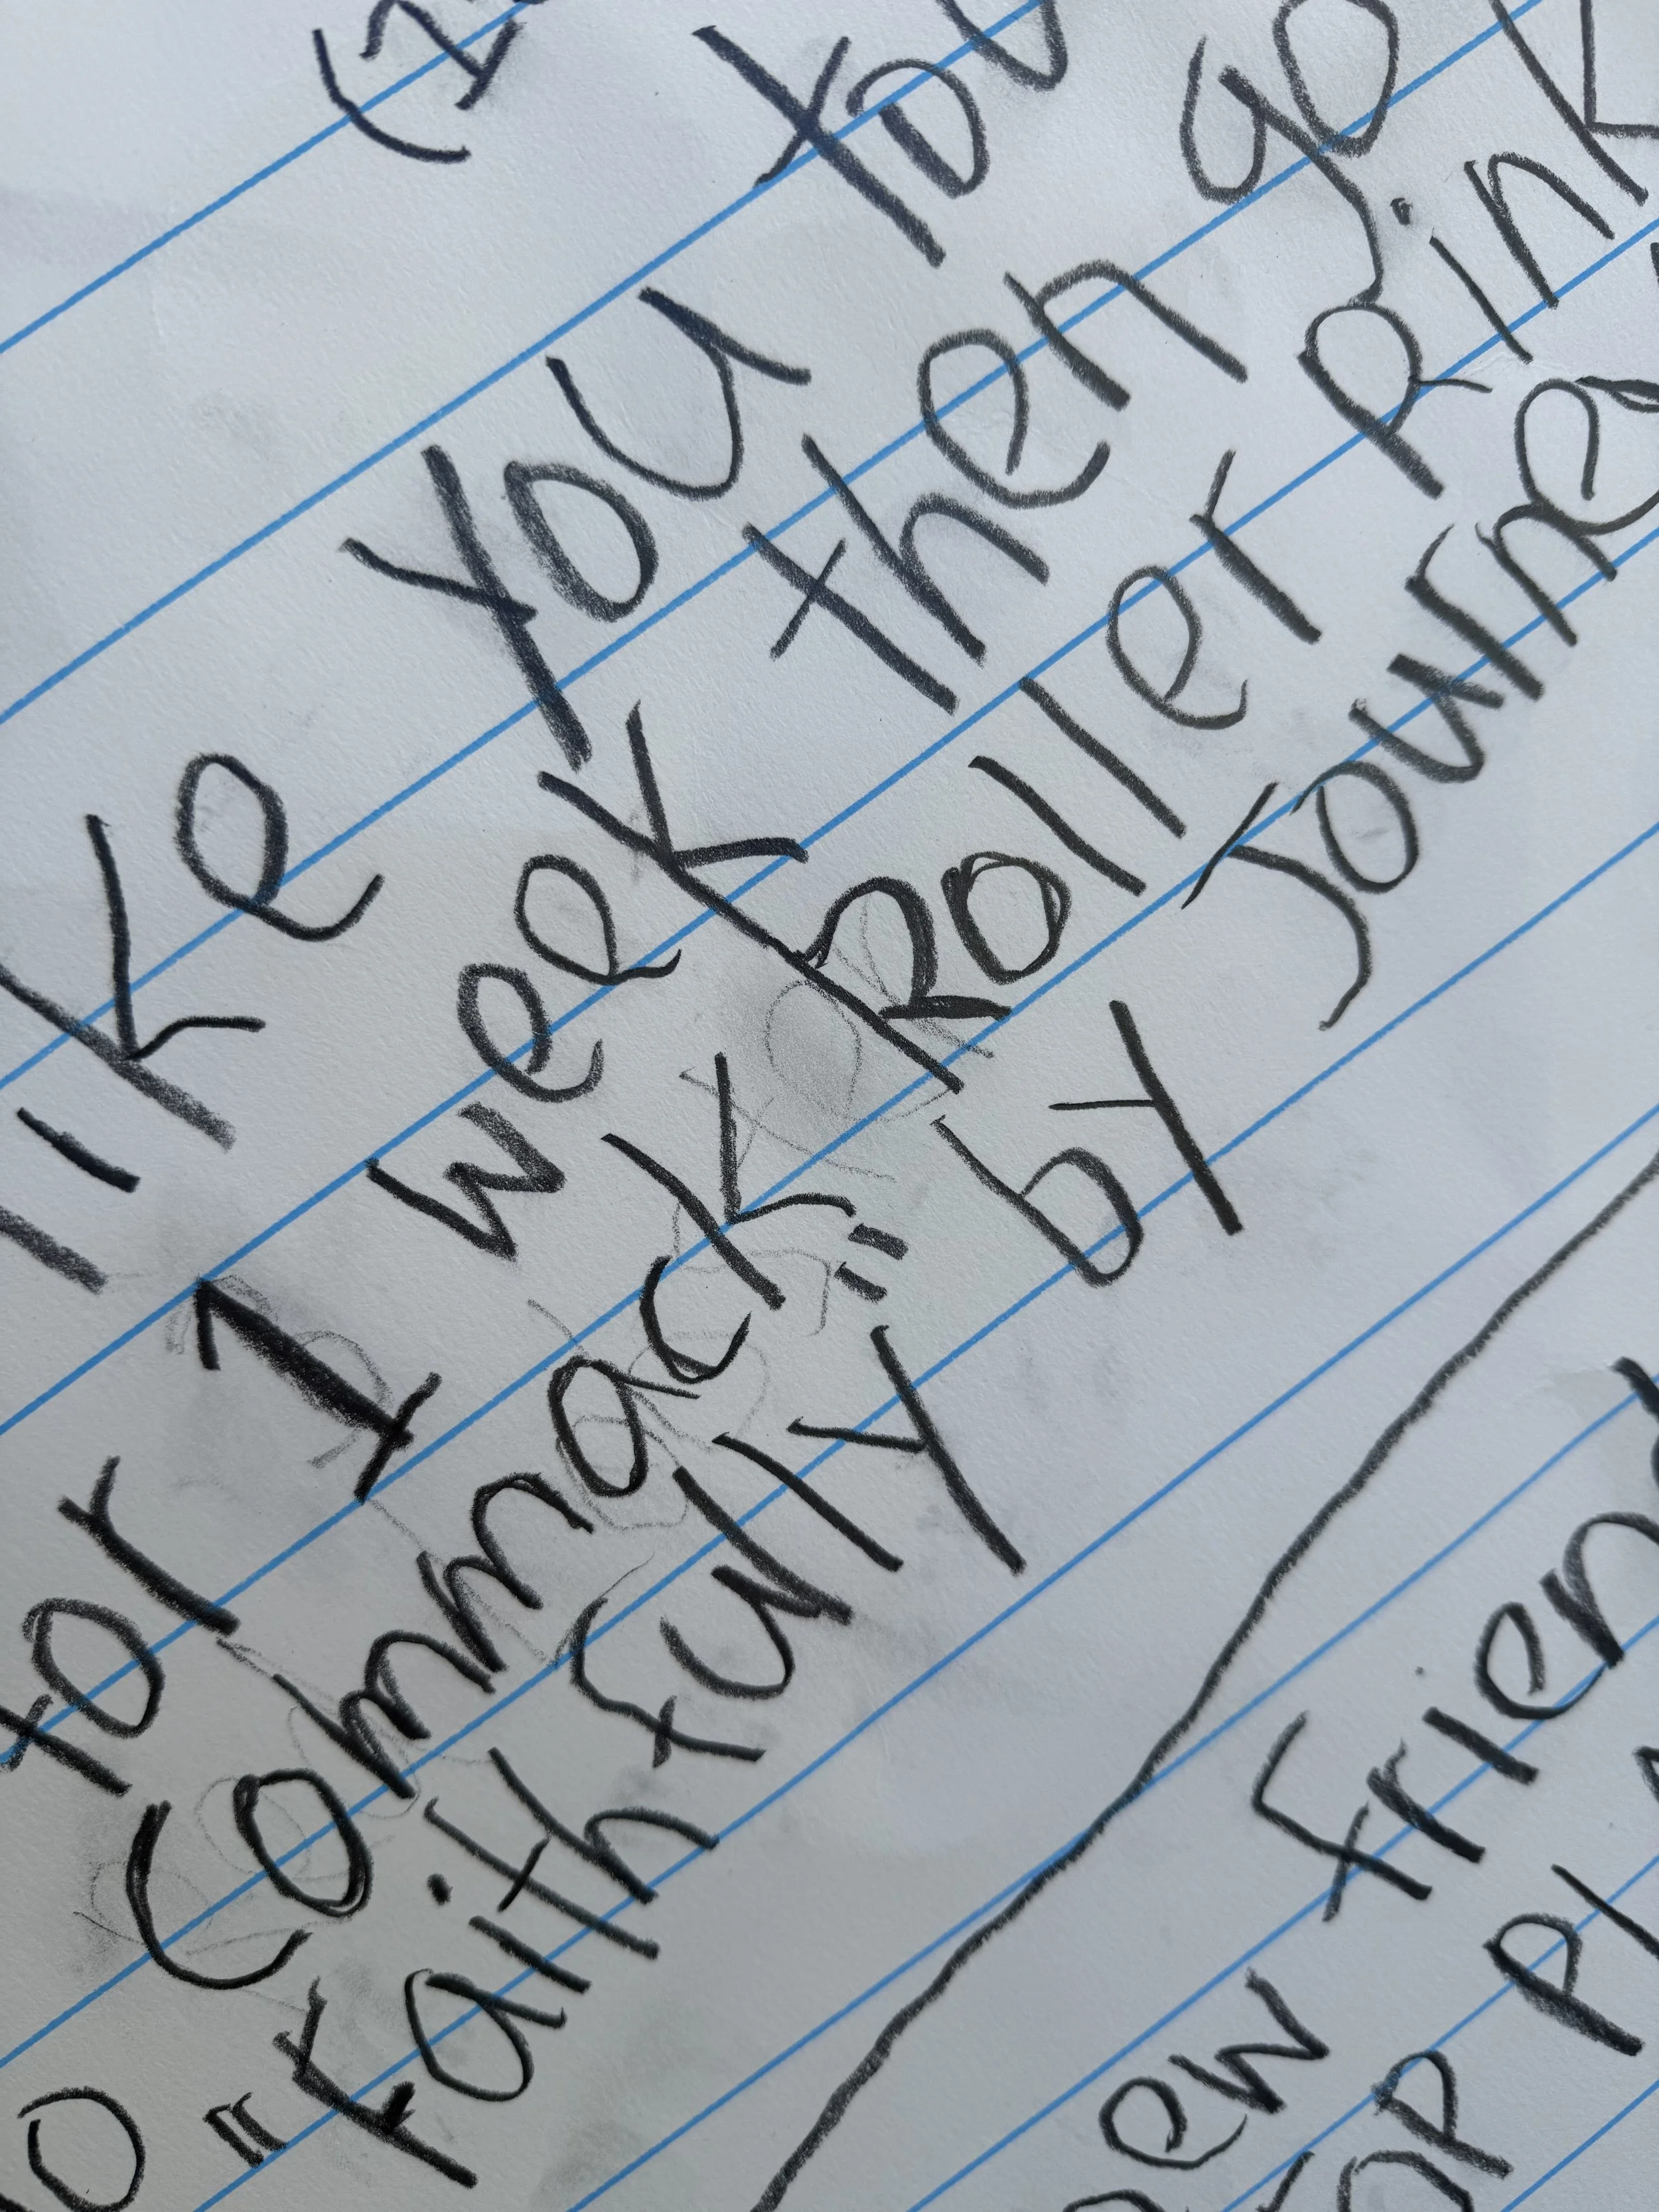 like you
for 1 week then go
Commack Roller Rink
"Faithfully" by Journe
ew Frien